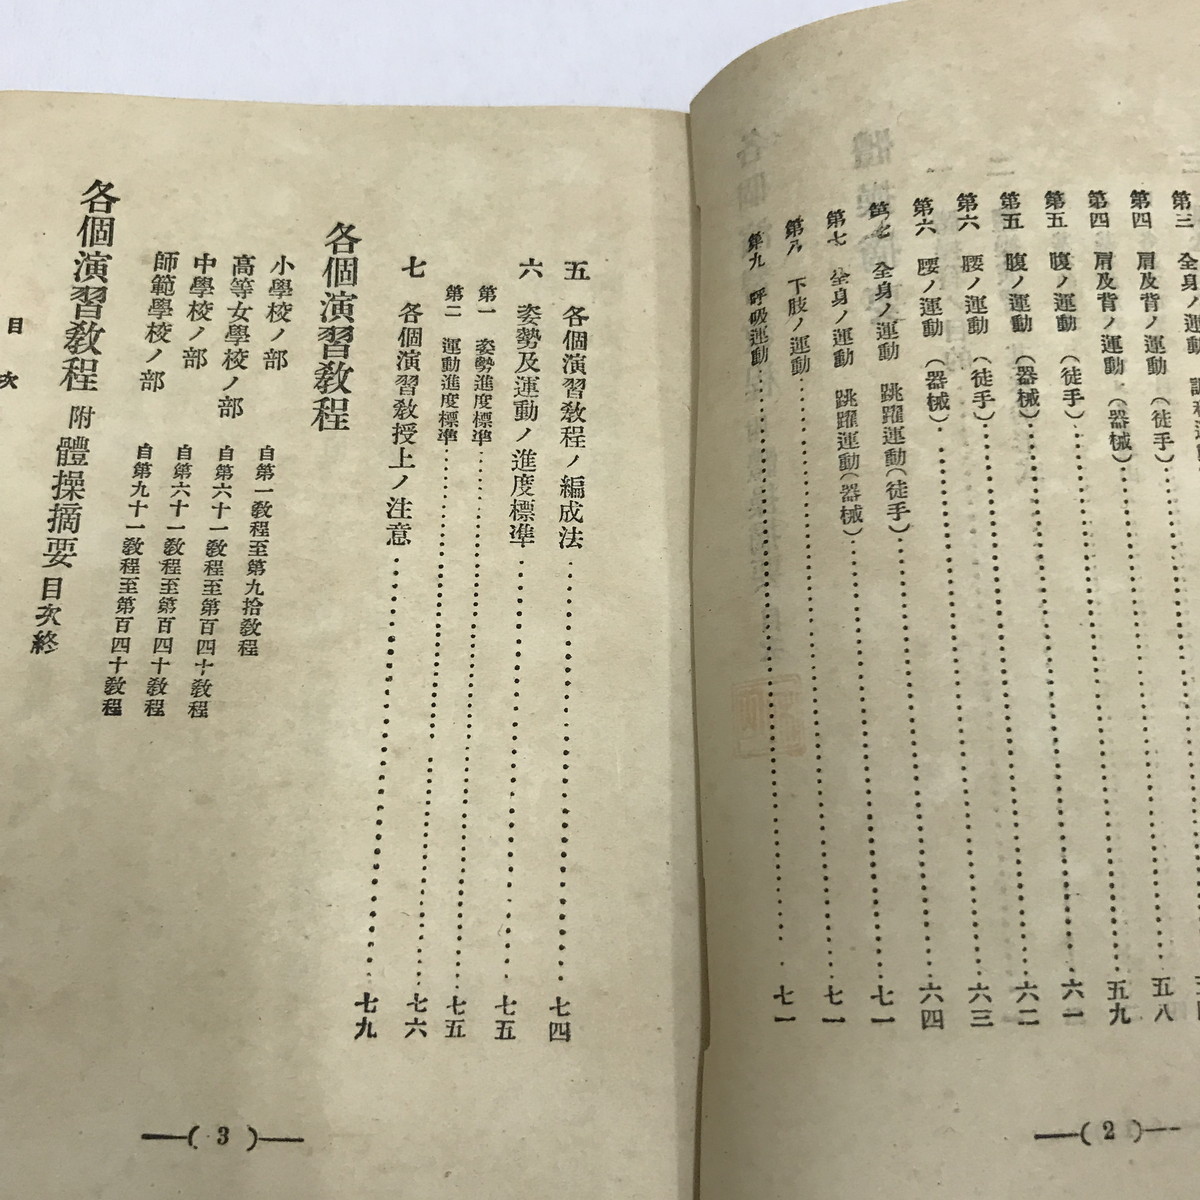 第四 肩及背ノ運動(徒手)……五八
第四 肩及背ノ運動(器械)……五九
第五 腹ノ運動(徒手)……六一
第五 腹ノ運動(器械)……六二
第六 腰ノ運動(徒手)……六三
第六 腰ノ運動(器械)……六四
第七 全身ノ運動 跳躍運動(徒手)……七一
第七 全身ノ運動 跳躍運動(器械)……七一
第八 下肢ノ運動……七一
第九 呼吸運動……
(2)
五 各個演習教程ノ編成法……七四
六 姿勢及運動ノ進度標準……七五
第一 姿勢進度標準……七五
第二 運動進度標準……七六
七 各個演習教授上ノ注意……七九
各個演習教程
小學校ノ部 自第一教程至第九拾教程
高等女學校ノ部 自第六十一教程至第百四十教程
中學校ノ部 自第六十一教程至第百四十教程
師範學校ノ部 自第九十一教程至第百四十教程
各個演習教程 附 體操摘要 目次終
目次
(3)